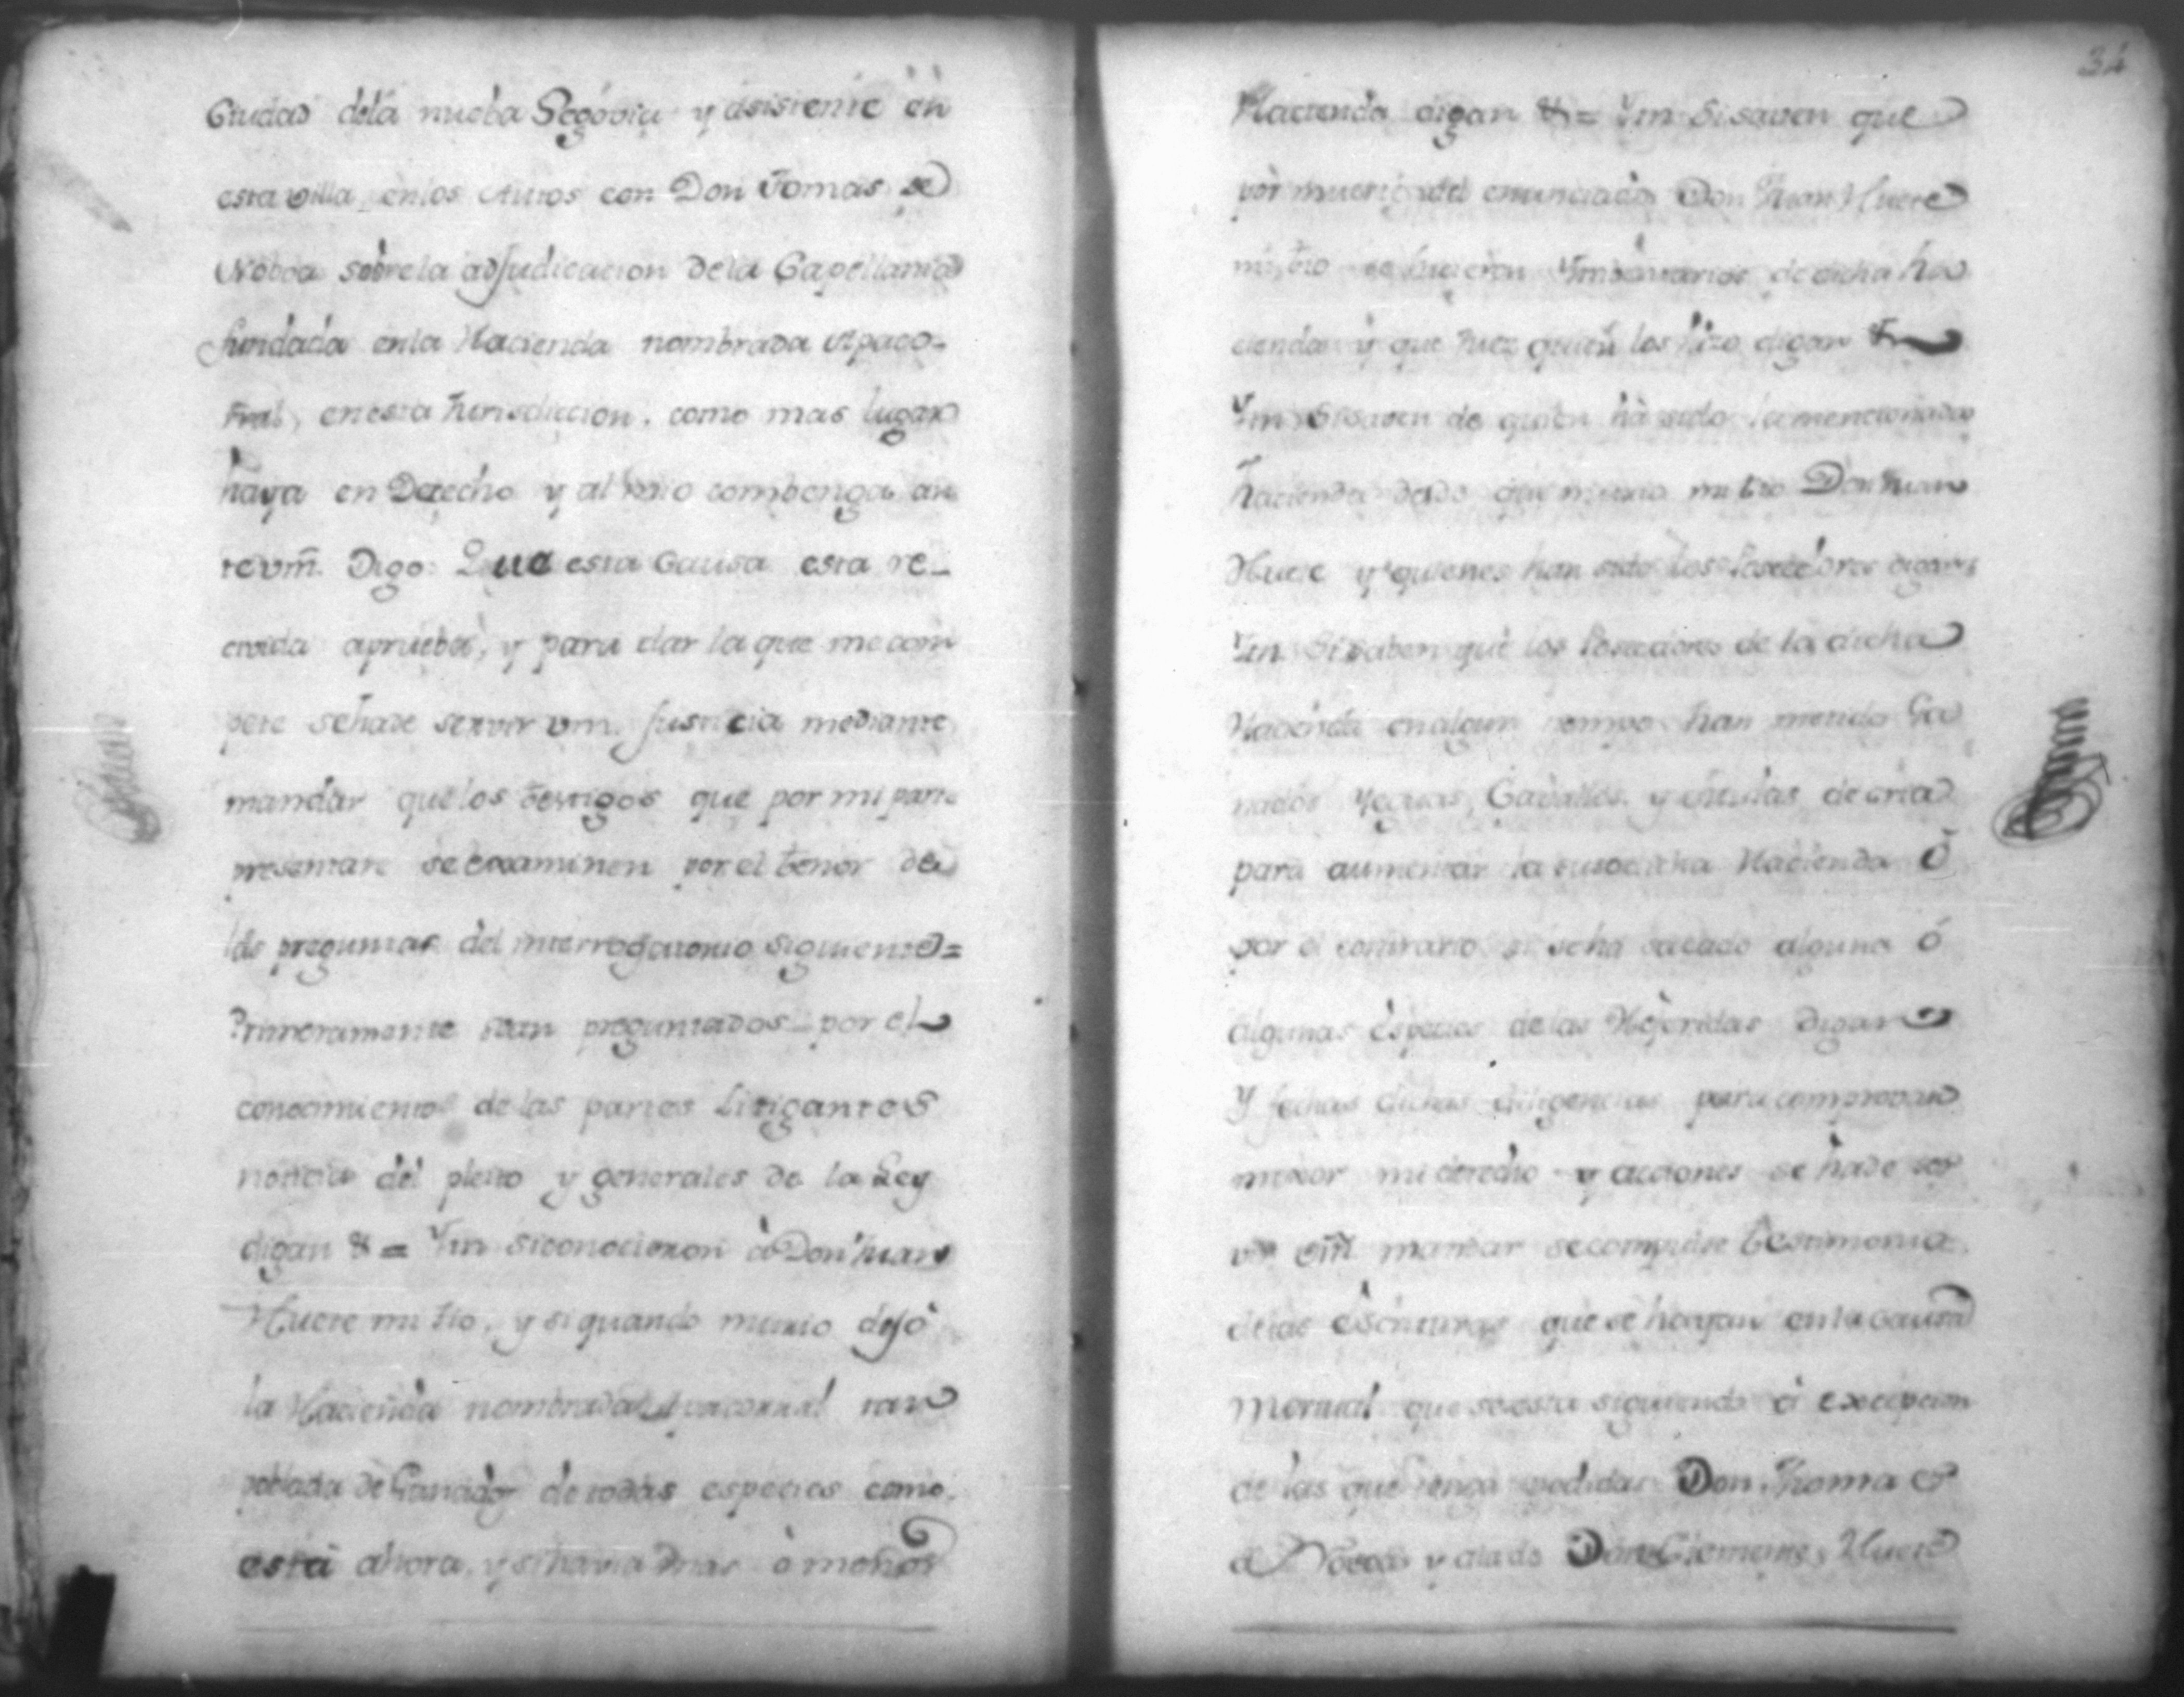 Ciudad dela nueba Segovia y asistente en
esta villa en los Autos con Don Tomas de
Noboa sobre la adjudicacion dela Capellania
fundada enla Hacienda nombrada Apaco-
rral, enesta Jurisdiccion, como mas lugar
haya en Derecho y al mio combenga an
te vm̃. Digo: Que esta Causa esta re-
civida aprueba, y para dar la que me com
pete sehade servir vm. Justicia mediante
mandar quelos testigos que por mi parte
presentare se examinen por el tenor de
las preguntas del interrogatorio siguiente=
Primeramente sean preguntados por el
conocimiento de las partes Litigantes
noticia del pleito y generales de la Ley
digan &= Ytm siconocieron à Don Juan
Huete mi tio, y si quando murio dejó
la Hacienda nombrada Apacorral tan
poblada de Ganado detodas especies como
está ahora, y si havia mas ò menos
34
Hacienda digan &= Ytm Sisaven que
por muerte del enunciado Don Juan Huete
mi tio se hicieron Ymbentarios de dicha ha
cienda y que Juez quien los hizo digan &
Ytm Sisaven de quien hà sido la mencionada
hacienda desde que murio mi tio Don Juan
Huete y quienes han sido los Posedores digan
Ytm Sisaben que los Poseedores de la dicha
Hacienda enalgun tiempo han metido Ga
nados Yeguas, Cavallos y Mulas de cria
para aumentar la susodicha Hacienda ó
por el contrario si seha sacado alguna ó
algunas especies delas Referidas digan
Y fechas dichas diligencias para comprovar
mejor mi derecho y acciones se hade ser
vir vm̃ mandar secompulse testimonio
delas escrituras que se hayan enla causa
mortual que se esta siguiendo à excepcion
de las que tenga pedidas Don Thomas
de Novoa y atado Don Clemente Huete